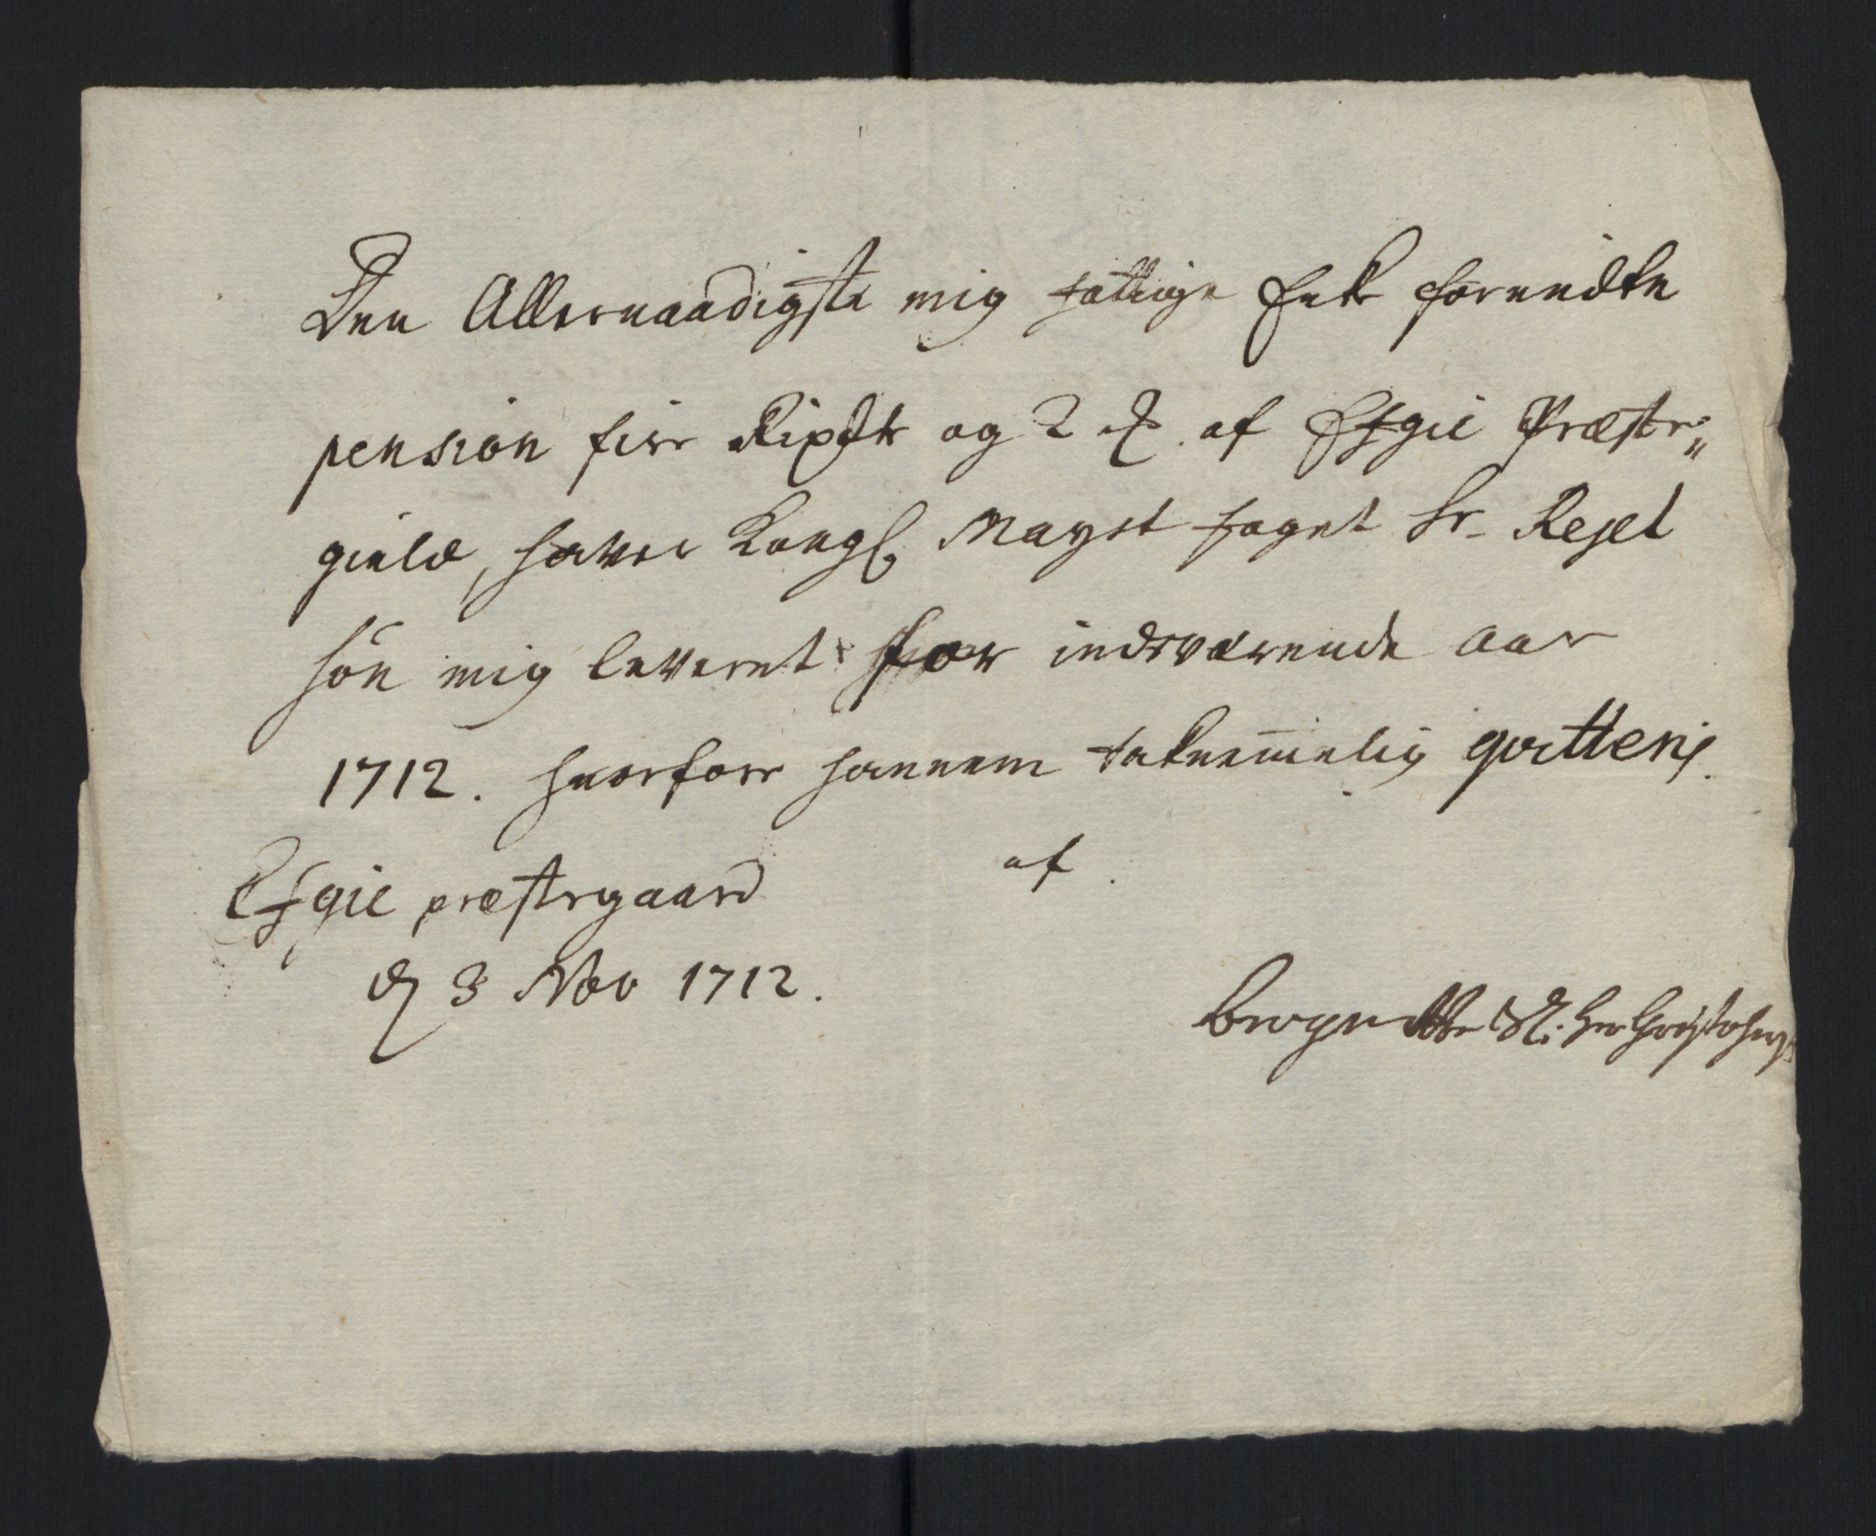 Den Allernaadigste mig fattige Enke forundte
pension fire Rixdlr og 2 af Efgie Præste„
gield, haver Kongl Mayst foget Sr. Rejel
søn mig leveret for indeværende aar
1712. hvorfore hannem takkemelig qvitteris.
af
Efgie præstegaard
d 3 Nov 1712.
Sl. Her Christophers